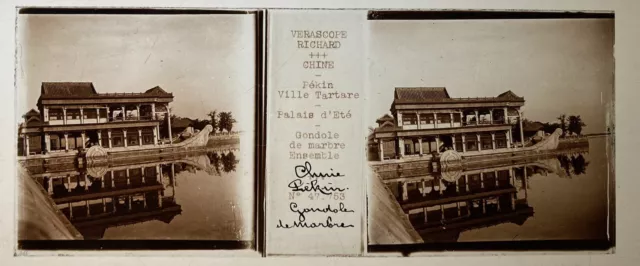 VERASCOPE
RICHARD
+++
CHINE
-
Pékin
Ville Tartare
-
Palais d'Eté
-
Gondole
de marbre
Ensemble
Chine
Pékin.
N° 47.753
Gondole
de marbre